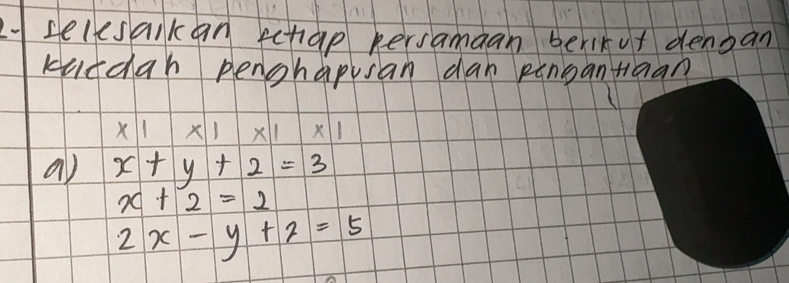 2- selesaikan setiap persamaan berikut dengan
kaedah penghapusan dan pengantiaan
x1 x1 x1 x1
a) x + y + z = 3
x + z = 2
2x - y + z = 5